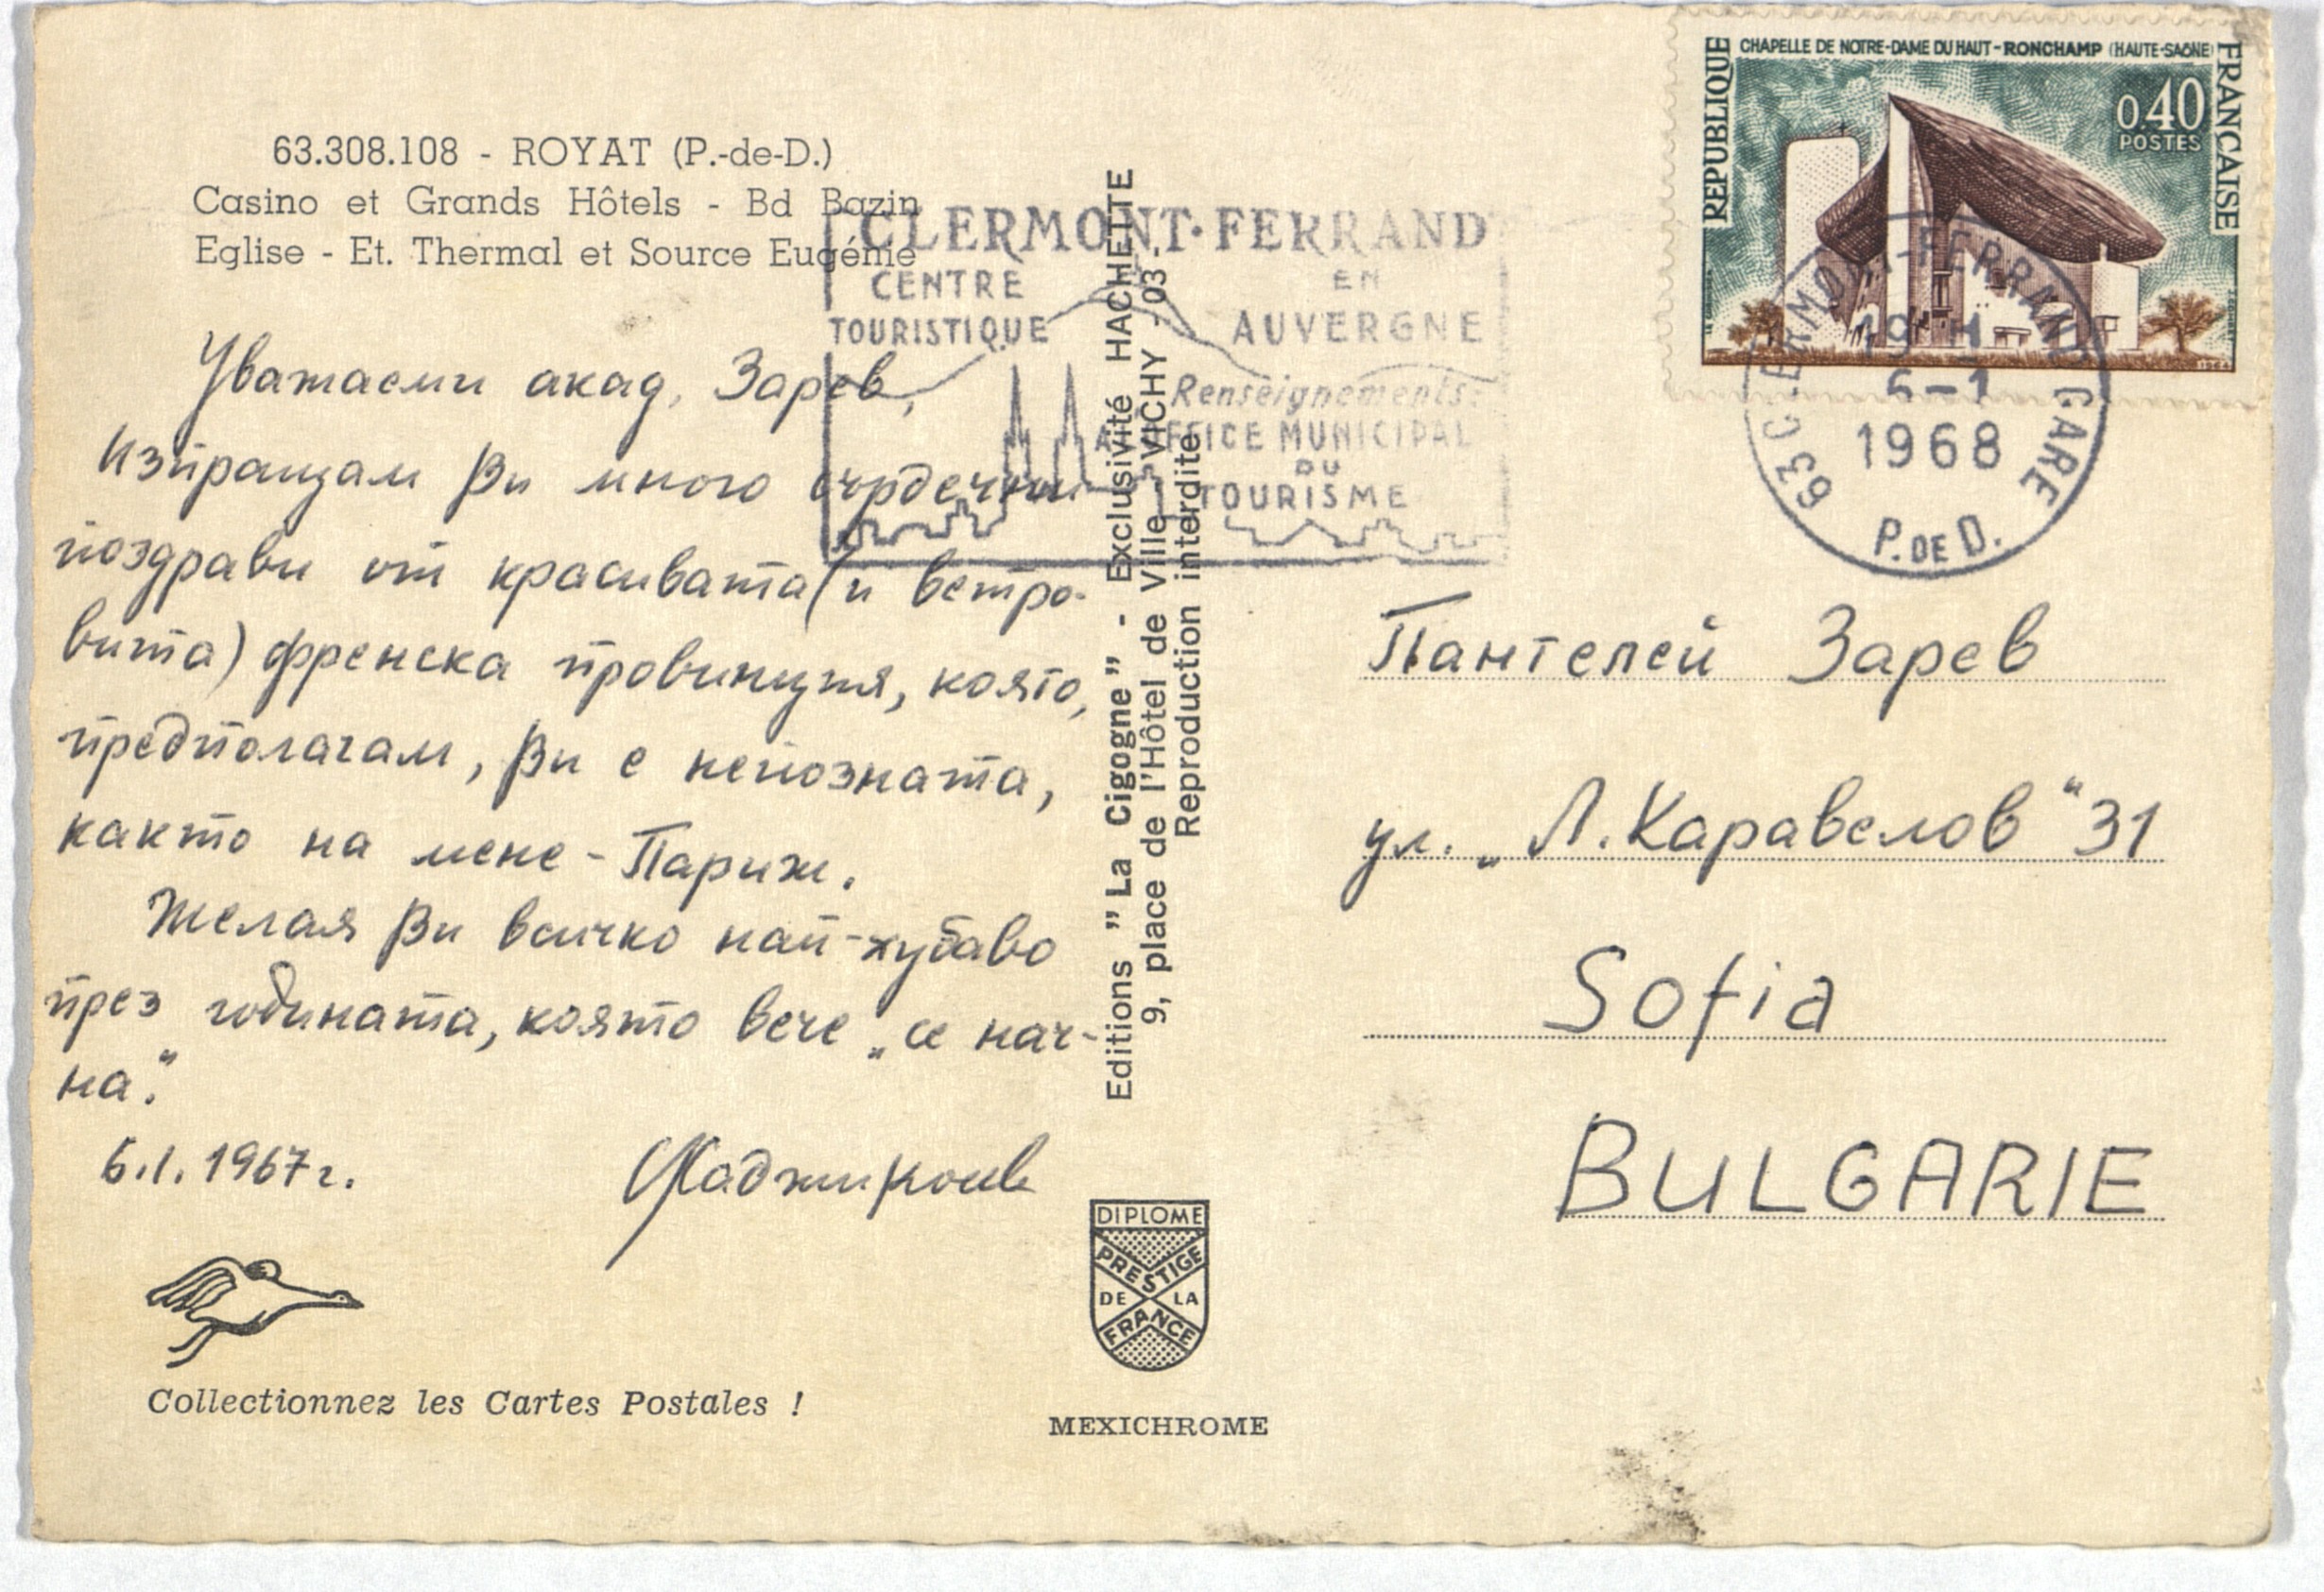 63.308.108 - ROYAT (P.-de-D.)
Casino et Grands Hôtels - Bd Bazin
Eglise - Et. Thermal et Source Eugénie
Уважаеми акад. Зарев,
Изпращам Ви много сърдечни
поздрави от красивата (и ветро-
вита) френска провинция, която,
предполагам, Ви е непозната,
както на мене - Париж.
Желая Ви всичко най-хубаво
през годината, която вече „се нач-
на."
6.I.1967г.
Collectionnez les Cartes Postales !
CLERMONT-FERRAND
CENTRE
TOURISTIQUE
EN
AUVERGNE
Renseignements:
OFFICE MUNICIPAL
DU
TOURISME
Editions "La Cigogne" - Exclusivité HACHETTE
9, place de l'Hôtel de Ville VICHY - 03 -
Reproduction interdite
DIPLOME
PRESTIGE
DE LA
FRANCE
MEXICHROME
REPUBLIQUE FRANCAISE
CHAPELLE DE NOTRE-DAME DU HAUT - RONCHAMP (HAUTE-SAÔNE)
0,40
POSTES
63 CLERMONT-FERRAND GARE
19 H
6 - 1
1968
P. DE D.
Пантелей Зарев
ул. „Л. Каравелов" 31
Sofia
BULGARIE